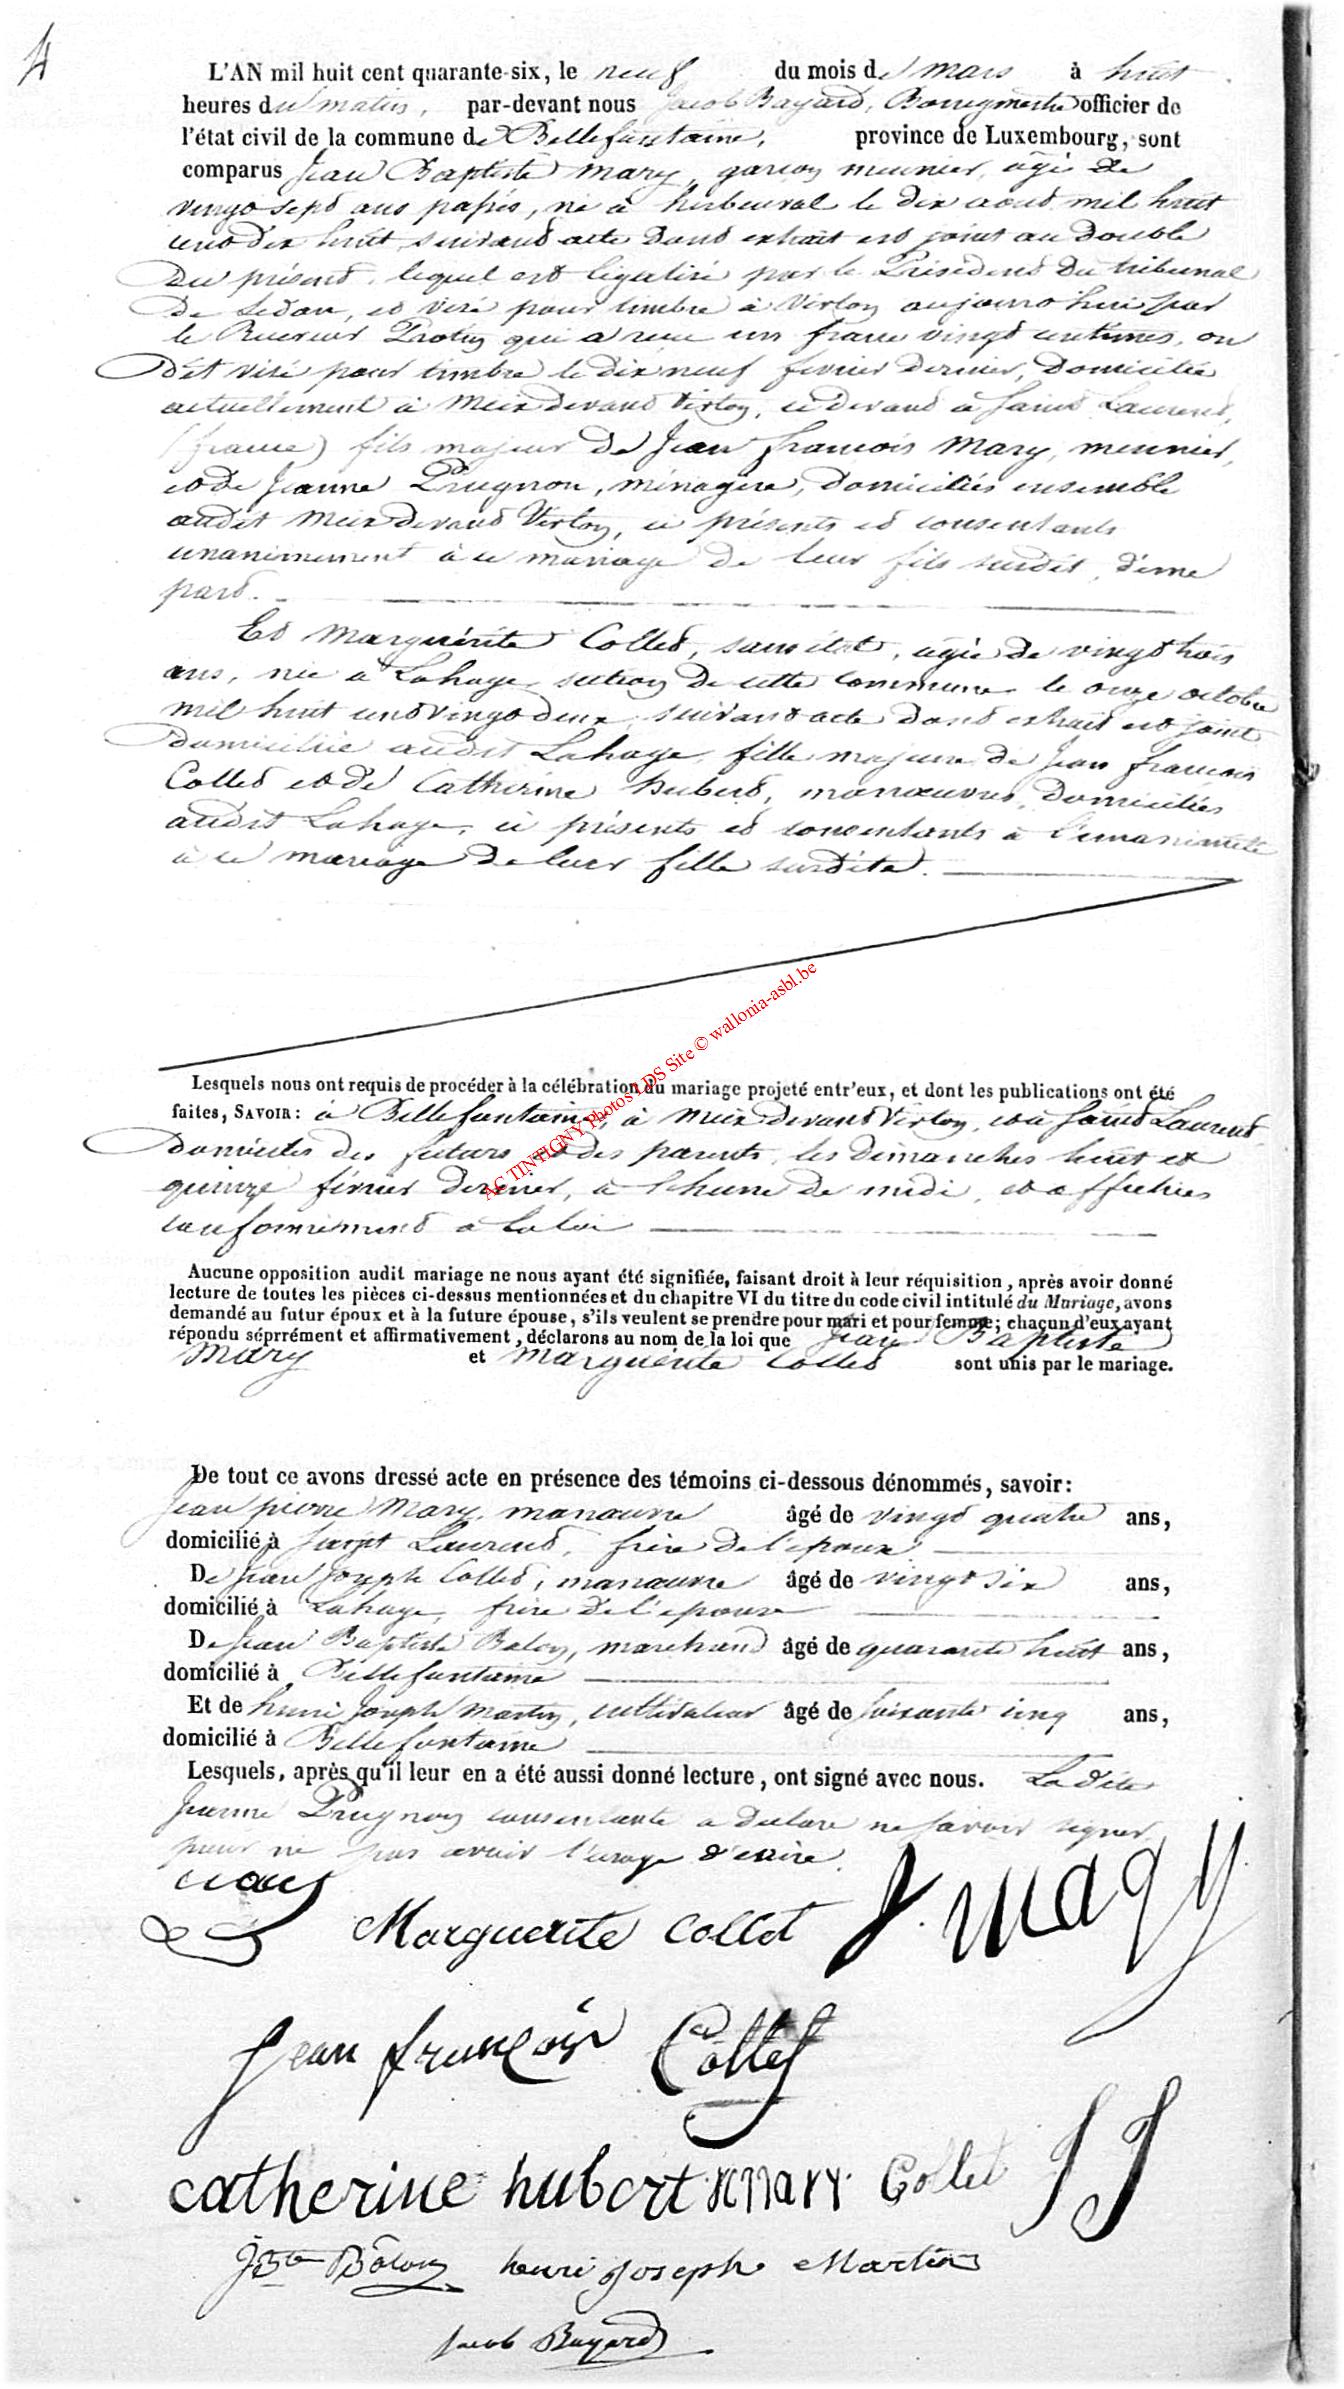 4
L'AN mil huit cent quarante-six, le neuf du mois de mars à huit
heures du matin, par-devant nous Jacob Bayard, Bourgmestre officier de
l'état civil de la commune de Bellefontaine, province de Luxembourg, sont
comparus Jean Baptiste Mary, garçon meunier, âgé de
vingt sept ans passés, né à herbeuval le dix aout mil huit
cent dix huit, suivant acte dont extrait est joint au double
du présent, lequel est légalisé par le Président du tribunal
de Sedan, et visé pour timbre à Virton aujourd'hui par
le Receveur qui a reçu un franc vingt centimes, ou
dit visé pour timbre le dix neuf fevrier dernier, domicilié
actuellement à Meix devant Virton, ci devant à Saint Laurent,
(france) fils majeur de Jean françois Mary, meunier,
et de Jeanne Prugnon, ménagère, domiciliés ensemble
audit Meix devant Virton, ci présents et consentants
unanimement à ce mariage de leur fils susdit, d'une
part.
Et Marguérite Collet, sans état, âgée de vingt trois
ans, née à Lahage section de cette commune le onze octobre
mil huit cent vingt deux, suivant acte dont extrait est joint
domiciliée audit Lahage, fille majeure de Jean françois
Collet et de Catherine hubert, manœuvres, domiciliés
audit Lahage, ci présents et consentants à l'unanimité
à ce mariage de leur fille susdite.
AC TINTIGNY Photos LDS Site © wallonia-asbl.be
Lesquels nous ont requis de procéder à la célébration du mariage projeté entr'eux, et dont les publications ont été
faites, SAVOIR: à Bellefontaine, à Meix devant Virton, et à Saint Laurent
domiciles des futurs et des parents, les dimanches huit et
quinze février dernier, à l'heure de midi, et affichées
conformément à la loi
Aucune opposition audit mariage ne nous ayant été signifiée, faisant droit à leur réquisition, après avoir donné
lecture de toutes les pièces ci-dessus mentionnées et du chapitre VI du titre du code civil intitulé du Mariage, avons
demandé au futur époux et à la future épouse, s'ils veulent se prendre pour mari et pour femme; chacun d'eux ayant
répondu séprrément et affirmativement, déclarons au nom de la loi que Jean Baptiste
Mary et Marguérite Collet sont unis par le mariage.
De tout ce avons dressé acte en présence des témoins ci-dessous dénommés, savoir:
Jean pierre Mary, manœuvre âgé de vingt quatre ans,
domicilié à Saint Laurent, frère de l'époux
De Jean Joseph Collet, manœuvre âgé de vingt six ans,
domicilié à Lahage, frère de l'épouse
De Jean Baptiste Balon, marchand âgé de quarante huit ans,
domicilié à Bellefontaine
Et de henri Joseph Martin, cultivateur âgé de soixante cinq ans,
domicilié à Bellefontaine
Lesquels, après qu'il leur en a été aussi donné lecture, ont signé avec nous. Ladite
Jeanne Prugnon consentante a déclaré ne savoir signer
pour ne pas avoir l'usage d'écrire.
Marguerite Collet J. Mary
Jean françois Collet
catherine hubert Mary Collet JJ
JBte Bâlon henri joseph Martin
Jacob Bayard